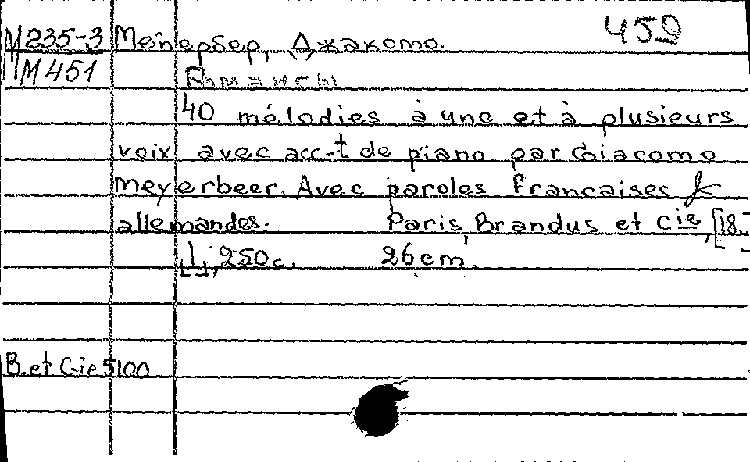 459
М235-3 Мейербер, Джакомо.
М451
Романсы
40 mélodies à une et à plusieurs
voix avec acc-t de piano par Giacomo
Meyerbeer. Avec paroles francaises &
allemandes. Paris, Brandus et Cie, [18
[1], 250 c. 26 cm.
B. et Cie 5100